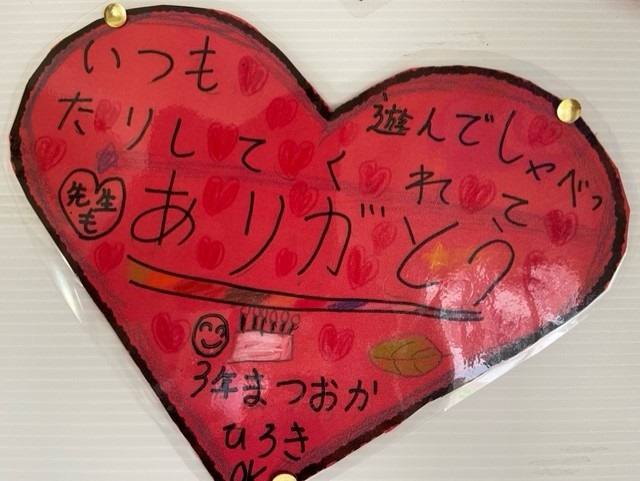 いつも
遊んでしゃべっ
たりしてくれて
先生も
ありがとう
3年まつおか
ひろき
OK